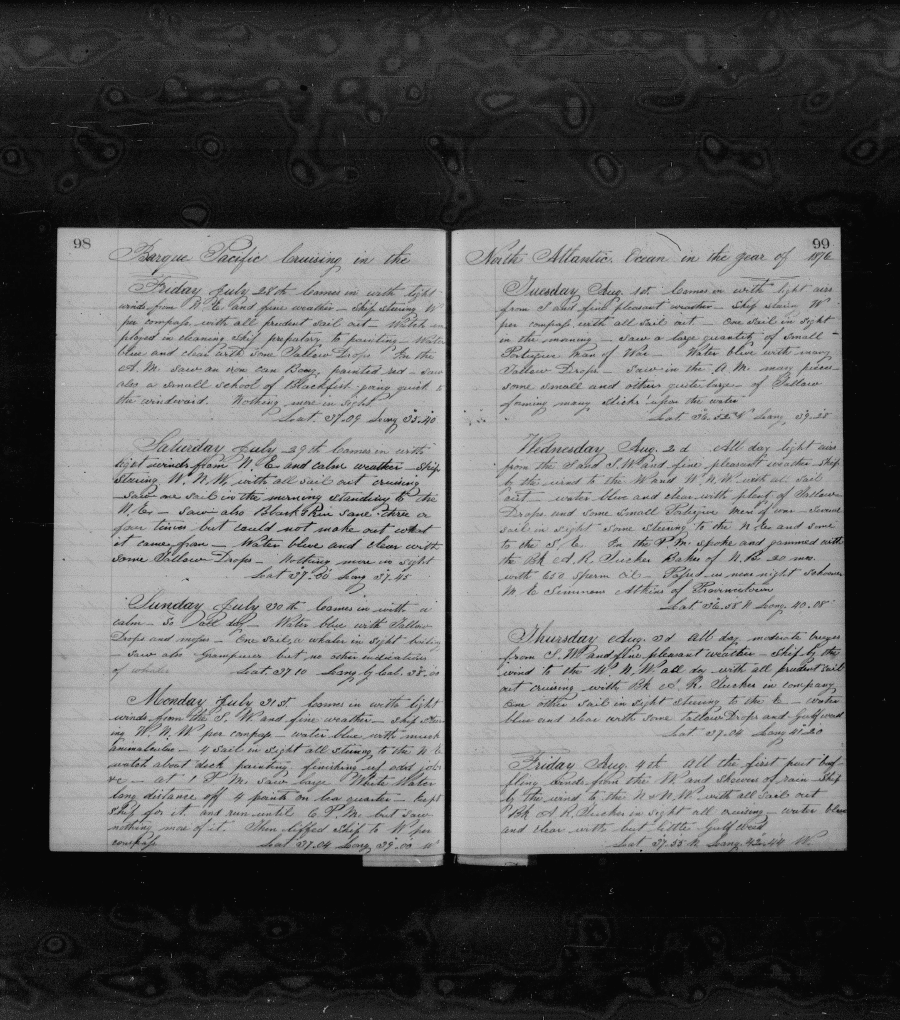 98
Barque Pacific Cruising in the
Friday July 28th Comes in with light
winds from N. E. and fine weather – Ship Steering W
per compass with all prudent sail out – Watch em
ployed in cleaning ship prepatory to painting – Water
blue and clear with some Tallow Drops. In the
A. M. saw an iron can Bouy, painted red – saw
also a small school of Blackfish going quick to
the windward. Nothing more in sight
Lat. 37.09 Long 35.40
Saturday July 29th Comes in with
light winds from N. E and calm weather – Ship
Steering W. N. W. with all sail out cruising
– Saw one sail in the morning standing to the
N. E. – Saw also Black Skin some three or
four times but could not make out what
it came from – Water blue and clear with
some Tallow Drops – Nothing more in sight
Lat 37.00 Long 37.45
Sunday July 30th Comes in with a
calm – So all day – Water blue with Tallow
Drops and – One sail, a whaler in sight boiling
– Saw also Grampuses but no other indications
of whales Lat. 37.10 Long by Cal. 38.00
Monday July 31st. Comes in with light
winds from the S. W and fine weather – Ship Steer
ing W. N. W per compass – water blue with much
animalculae – 4 sail in sight all steering to the N. E
watch about deck painting finishing up odd jobs
&c – at 1 P. M. saw large White Water
long distance off 4 points on lea quarter – kept
ship for it and run until 6 P. M. but saw
nothing more of it. Then luffed Ship to W per
compass Lat 37.04 Long 39.00 W
99
North Atlantic Ocean in the year of 1876
Tuesday Aug. 1st. Comes in with light airs
from S and fine pleasant weather – Ship steering W
per compass with all sail out – One sail in sight
in the morning – saw a large quantity of small
Portugues Man of War – Water blue with many
Tallow Drops – Saw in the A M. many pieces
some small and others quite large of Tallow
forming many Slicks upon the water
Lat 36.52 N Long 39.28
Wednesday Aug. 2d All day light airs
from the S and S. W and fine pleasant weather Ship
by the wind to the W and W. N. W with all sail
out – water blue and clear with plent of Tallow
Drops and some small Portugues Men of war – Several
sails in sight some Steering to the N. E and some
to the S. E. In the P. M. spoke and gammed with
the Bk A. R. Tucker Baker of N. B. 20 mos.
with 650 Sperm Oil – Passed us near night schooner
M. E Simmons Atkins of Provincetown
Lat 36.58 N Long. 40.08
Thursday Aug. 3d All day moderate breezes
from S. W and fine pleasant weather – Ship by the
wind to the W. N. W all day with all prudent sail
out cruising with Bk A. R. Tucker in company
one other sail in sight steering to the E – water
blue and clear with some Tallow Drops and Gulf weed
Lat 37.04 Long 41.20
Friday Aug. 4th All the first part baf
fling winds from the W and showers of rain – Ship
by the wind to the N & N. W. with all sails out
Bk A. R. Tucker in sight all cruising – water blue
and clear with but little Gulf weed
Lat 37.55 N Long 42.44 W.